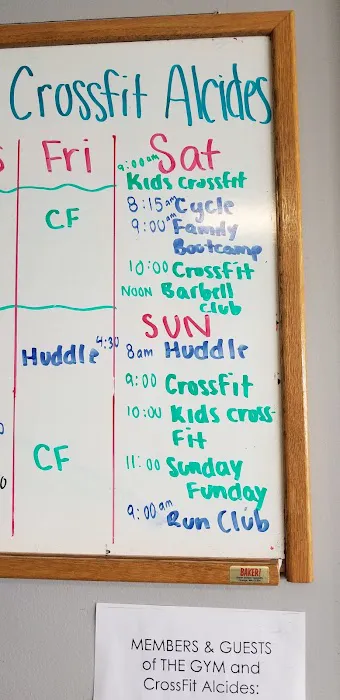 Crossfit Alcides
s
Fri
CF
Huddle 4:30
CF
Sat
9:00am
Kids crossfit
8:15am Cycle
9:00am Family
Bootcamp
10:00 CrossFit
NOON Barbell
club
SUN
8am Huddle
9:00 CrossFit
10:00 Kids cross-
Fit
11:00 Sunday
Funday
9:00am Run Club
BAKER!
MEMBERS & GUESTS
of THE GYM and
CrossFit Alcides: